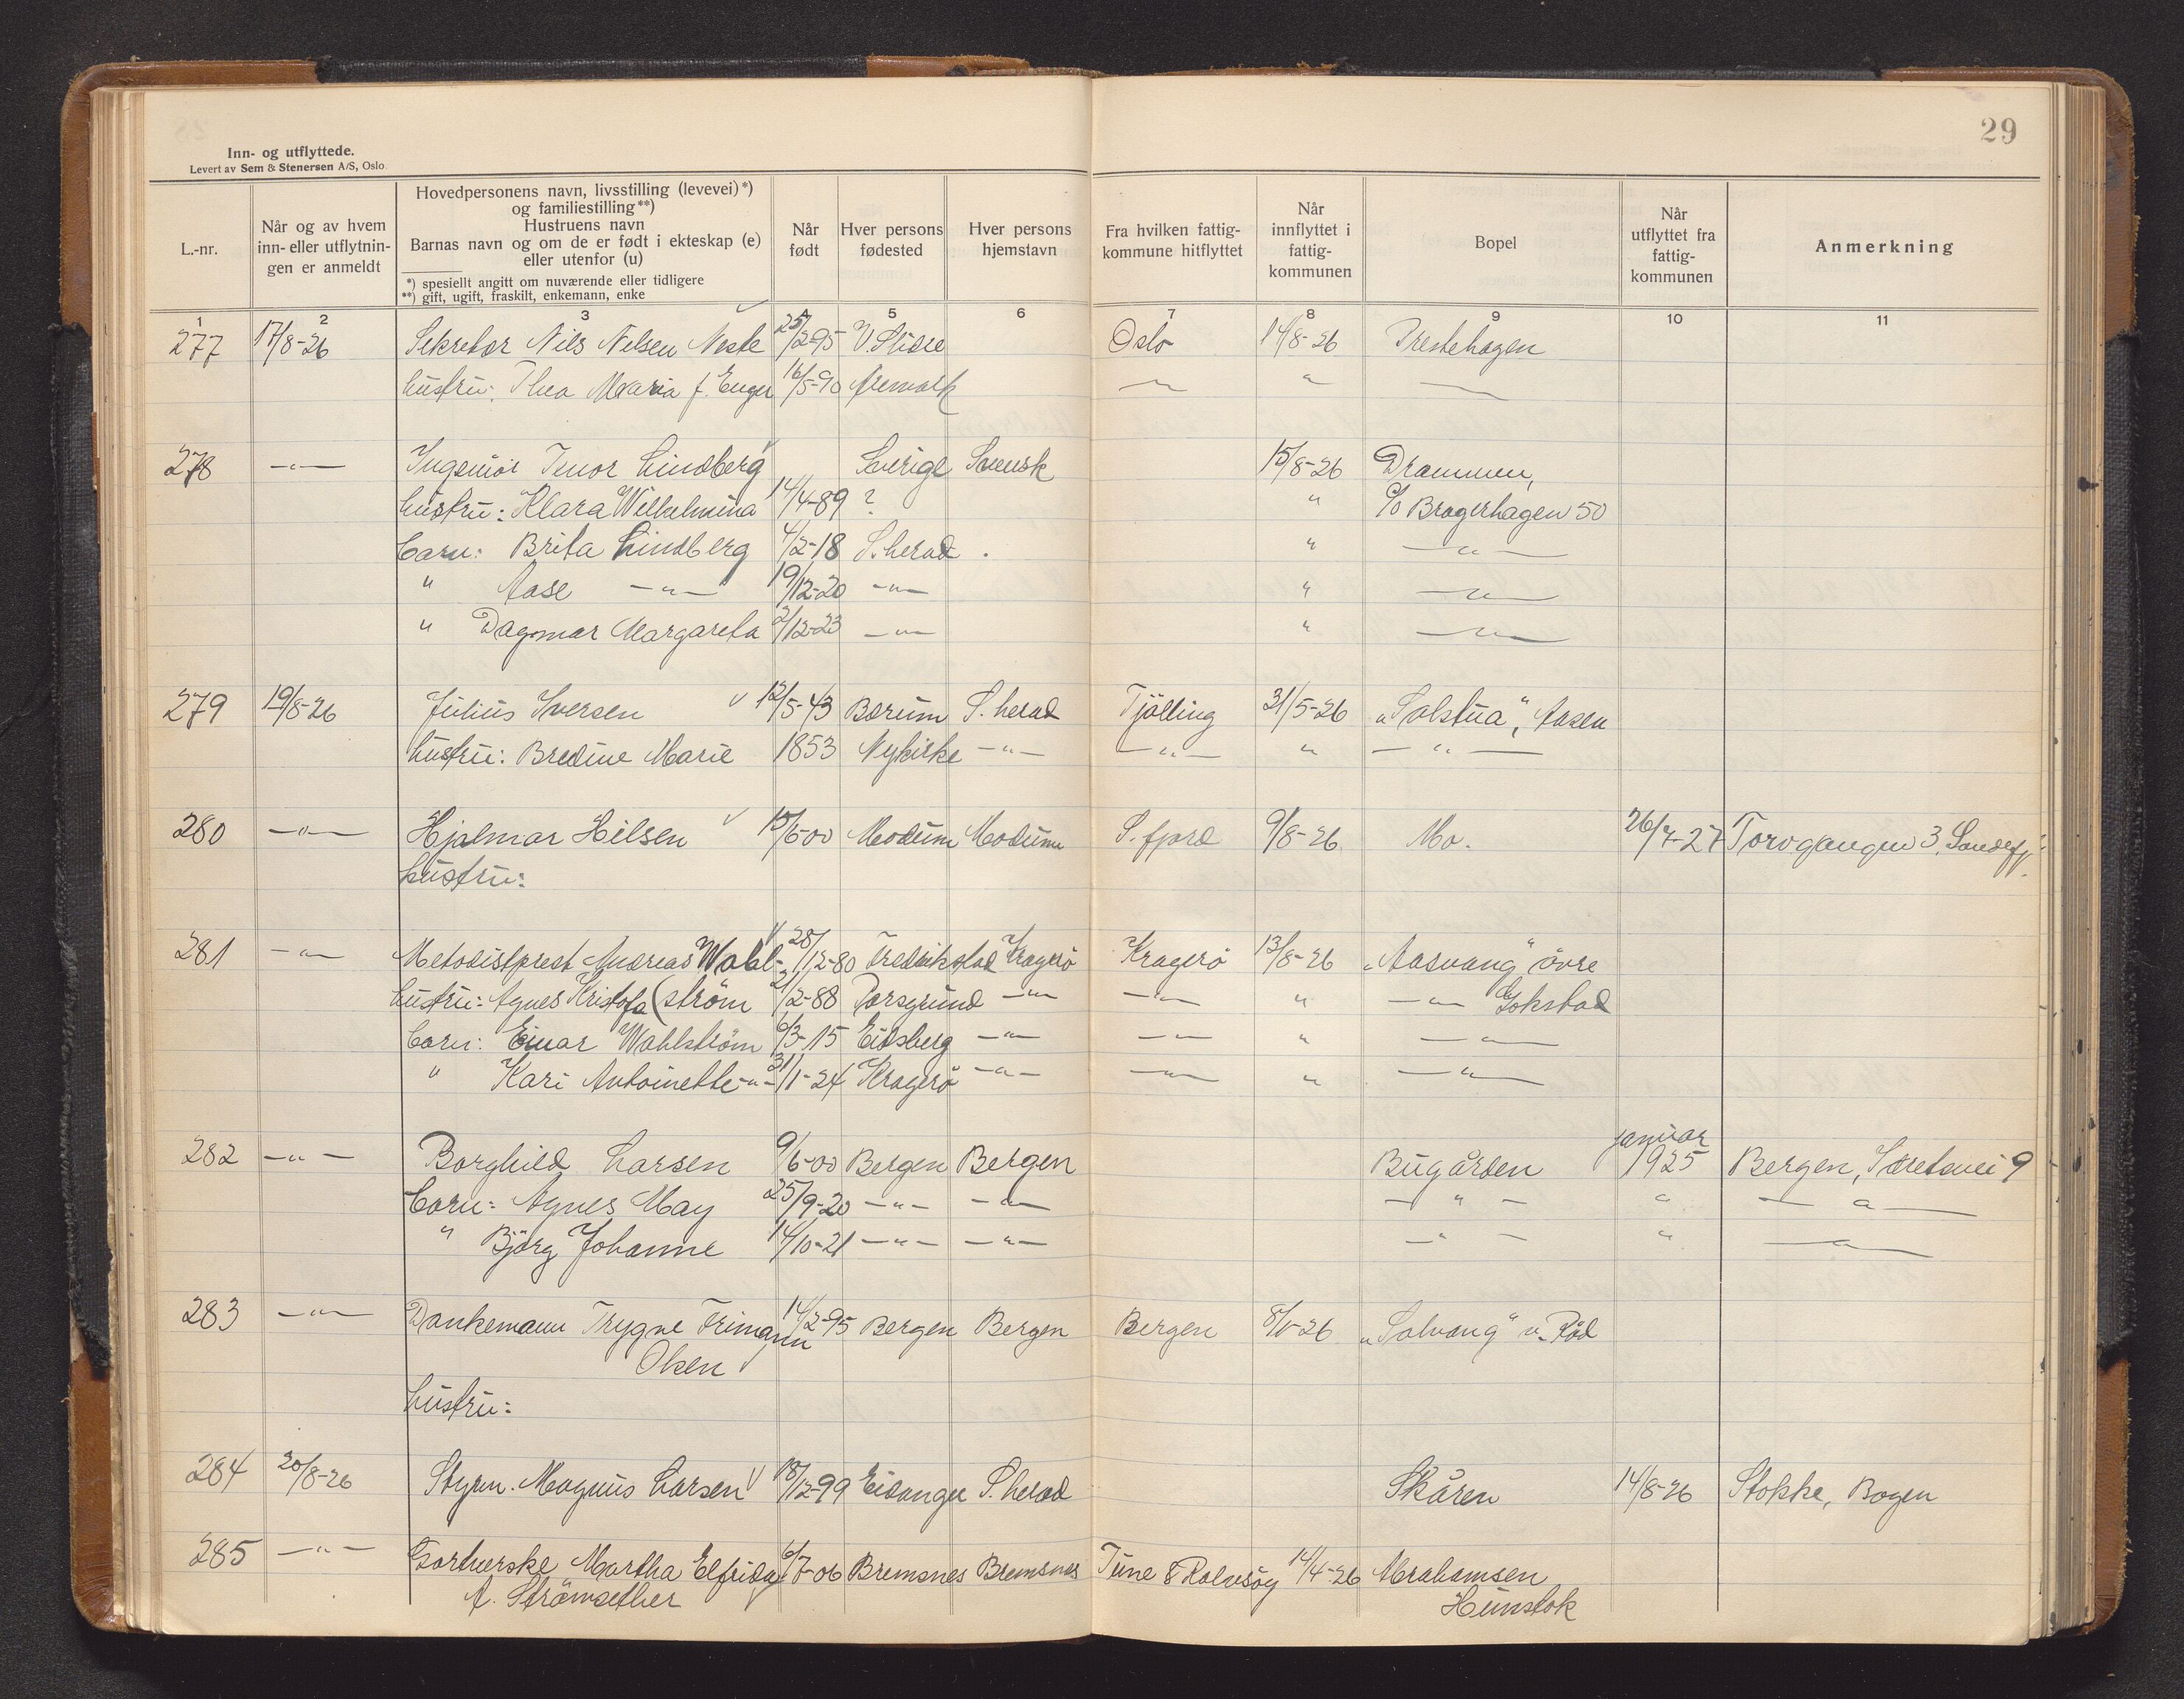 29
Inn- og utflyttede.
Levert av Sem & Stenersen A/S, Oslo.
L.-nr.
Når og av hvem inn- eller utflytnin-gen er anmeldt
Hovedpersonens navn, livsstilling (levevei)*) og familiestilling**)
Hustruens navn
Barnas navn og om de er født i ekteskap (e) eller utenfor (u)
*) spesiellt angitt om nuværende eller tidligere
**) gift, ugift, fraskilt, enkemann, enke
Når født
Hver persons fødested
Hver persons hjemstavn
Fra hvilken fattig-kommune hitflyttet
Når innflyttet i fattig-kommunen
Bopel
Når utflyttet fra fattig-kommunen
Anmerkning
1 2 3 4 5 6 7 8 9 10 11
277 17/8-26 Sekretær Nils Nelsen Neste 25/2-95 V. Slidre Oslo 14/8-26 Prestehagen
hustru: Thea Maria f. Enger 16/5-90 Aremark —"— " —"—
278 —"— Ingeniör Lindberg Sverige Svensk 15/8-26 Drammen,
hustru: Klara Wilhelmina 14/4-89 ? " c/o Bragerhagen 50
barn: Brita Lindberg 4/2-18 S. herad . " —"—
" Aase —"— 19/12-20 —"— " —"—
" Dagmar Margareta 2/12-23 —"— " —"—
279 19/8-26 Julius Iversen 12/5-43 Bærum S. herad Tjölling 31/5-26 „Solstua“, Aasen
hustru: Bredine Marie 1853 Nykirke —"— —"— " —"—
280 —"— Hjalmar Hilsen 15/6-00 Modum Modum S. fjord 9/8-26 Mo. 26/7-27 Torvgangen 3, Sandefj.
hustru:
281 —"— Metodistprest Andreas Wahl- 28/12-80 Fredrikstad Kragerö Kragerö 13/8-26 „Aasvang“ övre
hustru: Agnes Kristofa (ström 2/2-88 Porsgrund —"— —"— " —"— Gokstad
barn: Einar Wahlström 6/3-15 Eidsberg —"— —"— " —"—
" Kari Antoinette —"— 31/1-24 Kragerö —"— —"— " —"—
282 —"— Borghild Larsen 9/6-00 Bergen Bergen Bugården januar 1925 Bergen, 9
barn: Agnes May 25/9-20 —"— —"— —"— " —"—
" Björg Johanne 14/10-21 —"— —"— —"— " —"—
283 —"— Dankemann Trygve Frimann 14/2-95 Bergen Bergen Bergen 8/1-26 „Solvang“ v. Röd
Olsen
hustru:
284 20/8-26 Styrm. Magnus Larsen 18/12-99 Eidanger S. herad Skåren 14/8-26 Stokke, Bogen
285 —"— Gartnerske Martha Elfrida 6/7-06 Bremsnes Bremsnes Tune & Rolvsöy 14/4-26 Abrahamsen
A. Strömsether Hunstok